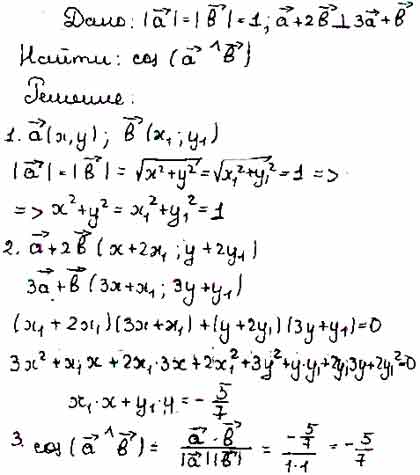 Дано: |a⃗| = |b⃗| = 1; a⃗ + 2b⃗ ⊥ 3a⃗ + b⃗
Найти: cos (a⃗ ^ b⃗)
Решение:
1. a⃗ (x, y); b⃗ (x₁; y₁)
|a⃗| = |b⃗| = √(x² + y²) = √(x₁² + y₁²) = 1 =>
=> x² + y² = x₁² + y₁² = 1
2. a⃗ + 2b⃗ (x + 2x₁; y + 2y₁)
3a⃗ + b⃗ (3x + x₁; 3y + y₁)
(x₁ + 2x₁)(3x + x₁) + (y + 2y₁)(3y + y₁) = 0
3x² + x₁x + 2x₁·3x + 2x₁² + 3y² + y·y₁ + 2y₁3y + 2y₁² = 0
x₁·x + y₁·y = -5/7
3. cos (a⃗ ^ b⃗) = (a⃗ · b⃗)/(|a⃗||b⃗|) = (-5/7)/(1·1) = -5/7